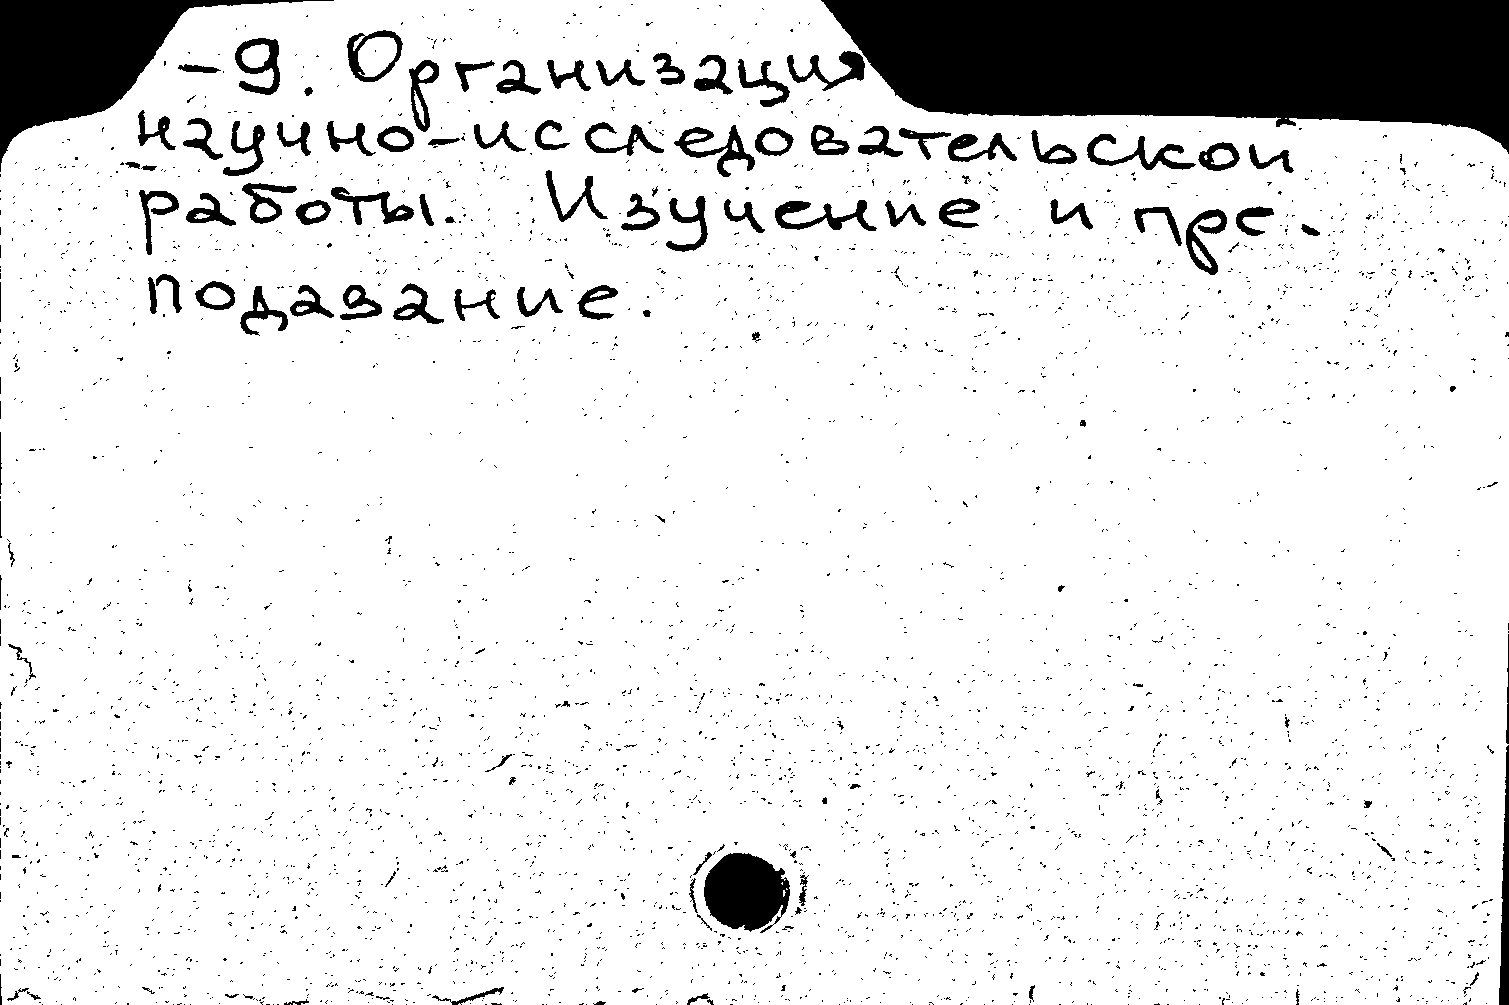 -9. Организация
научно-исследовательской
работы. Изучение и пре-
подавание.